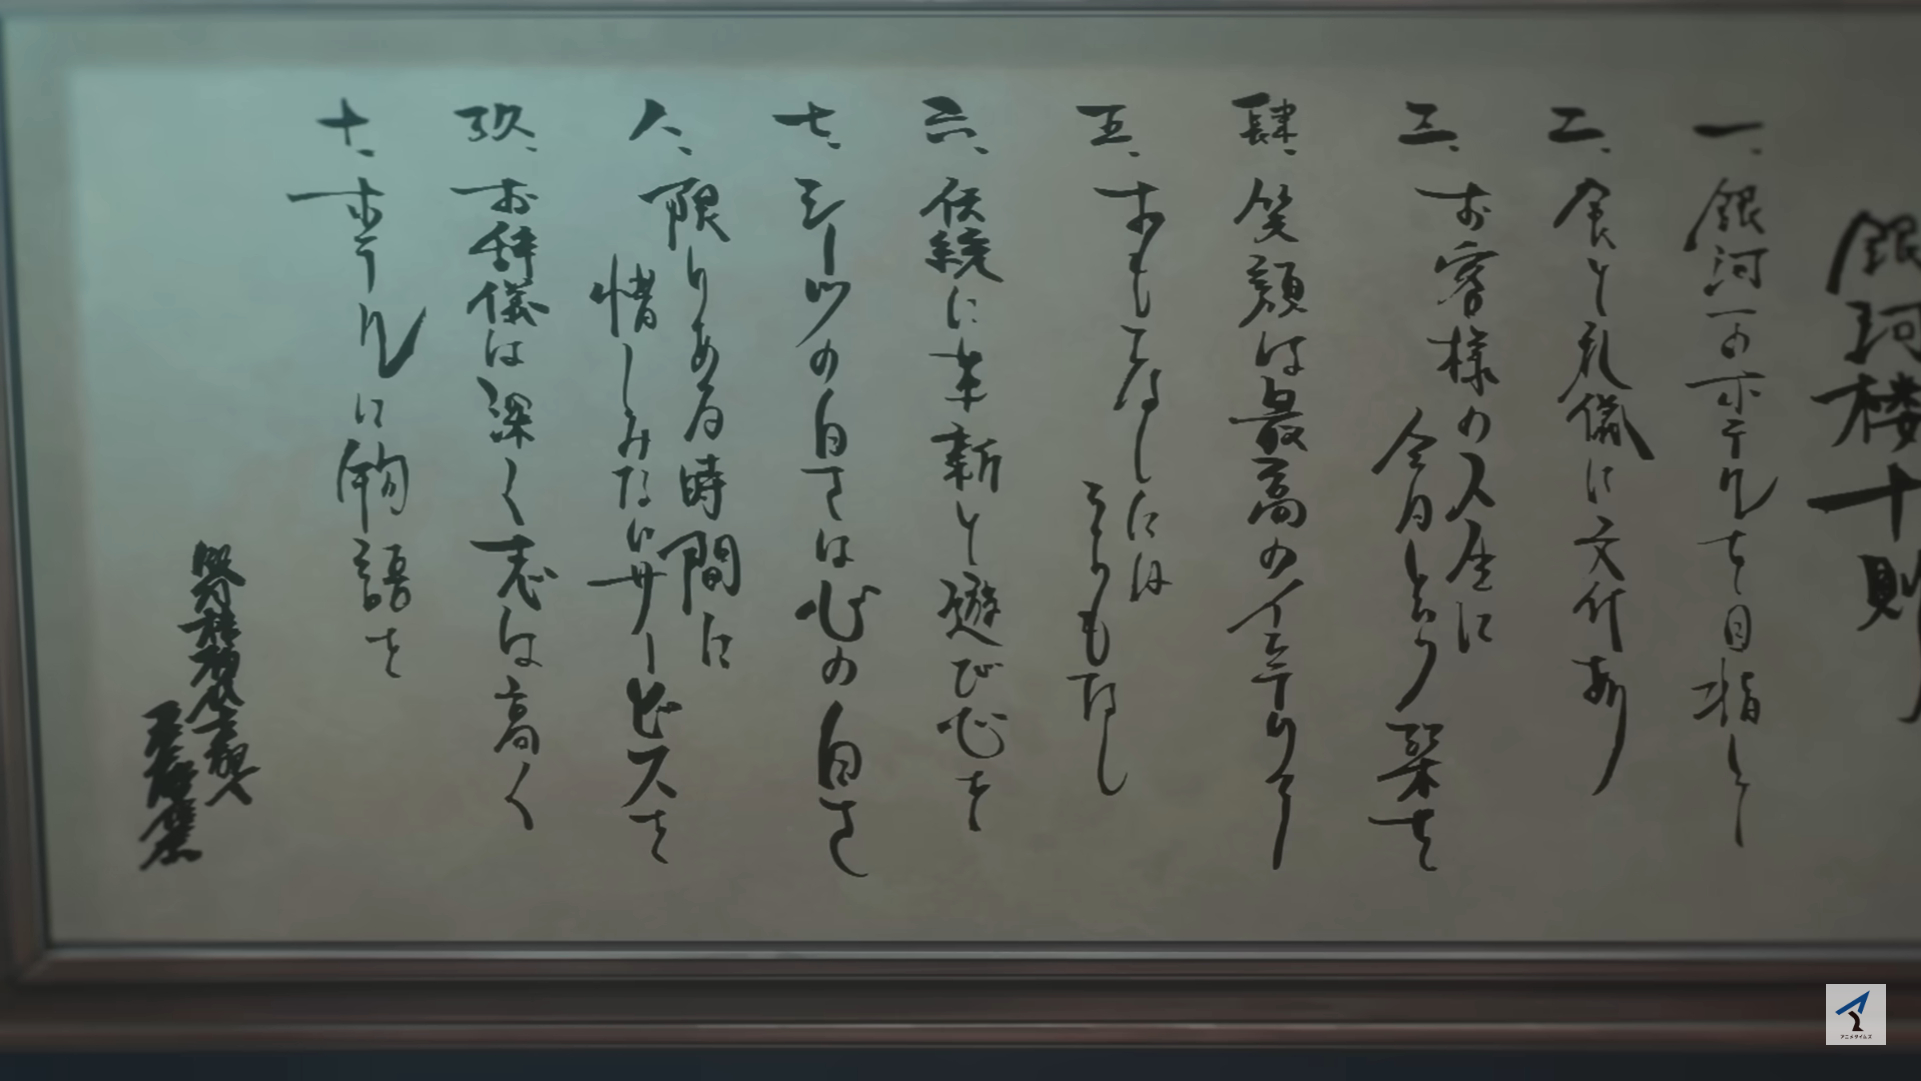 銀河楼十則
一、銀河一のホテルを目指して
二、食と礼儀に文化あり
三、お客様の人生に
今日という栞を
肆、笑顔は最高のイミテリアー
五、おもてなしには
うらもなし
六、伝統に革新と遊び心を
七、シーツの白さは心の白さ
八、限りある時間に
惜しみなきサービスを
玖、お辞儀は深く志は高く
十、ホテルに物語を
アニメタイムズ